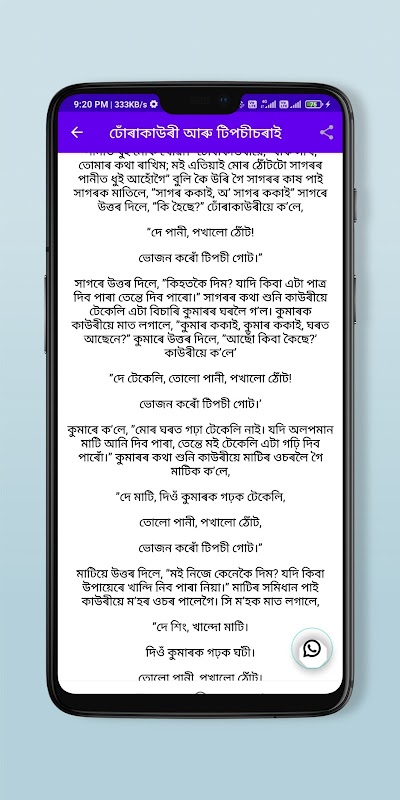 9:20 PM | 333KB/s
ঢোঁৰাকাউৰী আৰু টিপচীচৰাই
তোমাৰ কথা ৰাখিম; মই এতিয়াই মোৰ ঠোঁটটো সাগৰৰ
পানীত ধুই আহোঁগৈ” বুলি কৈ উৰি গৈ সাগৰৰ কাষ পাই
সাগৰক মাতিলে, “সাগৰ ককাই, অ’ সাগৰ ককাই” সাগৰে
উত্তৰ দিলে, “কি হৈছে?” ঢোঁৰাকাউৰীয়ে ক’লে,
“দে পানী, পখালো ঠোঁট!
ভোজন কৰোঁ টিপচী গোট।”
সাগৰে উত্তৰ দিলে, “কিহতকৈ দিম? যাদি কিবা এটা পাত্ৰ
দিব পাৰা তেন্তে দিব পাৰো।” সাগৰৰ কথা শুনি কাউৰীয়ে
টেকেলি এটা বিচাৰি কুমাৰৰ ঘৰলৈ গ’ল। কুমাৰক
কাউৰীয়ে মাত লগালে, “কুমাৰ ককাই, কুমাৰ ককাই, ঘৰত
আছেনে?” কুমাৰে উত্তৰ দিলে, “আছোঁ কিবা কৈছে?’
কাউৰীয়ে ক’লে’
“দে টেকেলি, তোলো পানী, পখালো ঠোঁট!
ভোজন কৰোঁ টিপচী গোট।’
কুমাৰে ক’লে, “মোৰ ঘৰত গঢ়া টেকেলি নাই। যদি অলপমান
মাটি আনি দিব পাৰা, তেন্তে মই টেকেলি এটা গঢ়ি দিব
পাৰোঁ।” কুমাৰৰ কথা শুনি কাউৰীয়ে মাটিৰ ওচৰলৈ গৈ
মাটিক ক’লে,
“দে মাটি, দিওঁ কুমাৰক গঢ়ক টেকেলি,
তোলো পানী, পখালো ঠোঁট,
ভোজন কৰোঁ টিপচী গোট।”
মাটিয়ে উত্তৰ দিলে, “মই নিজে কেনেকৈ দিম? যদি কিবা
উপায়েৰে খান্দি নিব পাৰা নিয়া।” মাটিৰ সমিধান পাই
কাউৰীয়ে ম’হৰ ওচৰ পালেগৈ। সি ম’হক মাত লগালে,
“দে শিং, খান্দো মাটি।
দিওঁ কুমাৰক গঢ়ক ঘটী।
তোলো পানী, পখালো ঠোঁট।